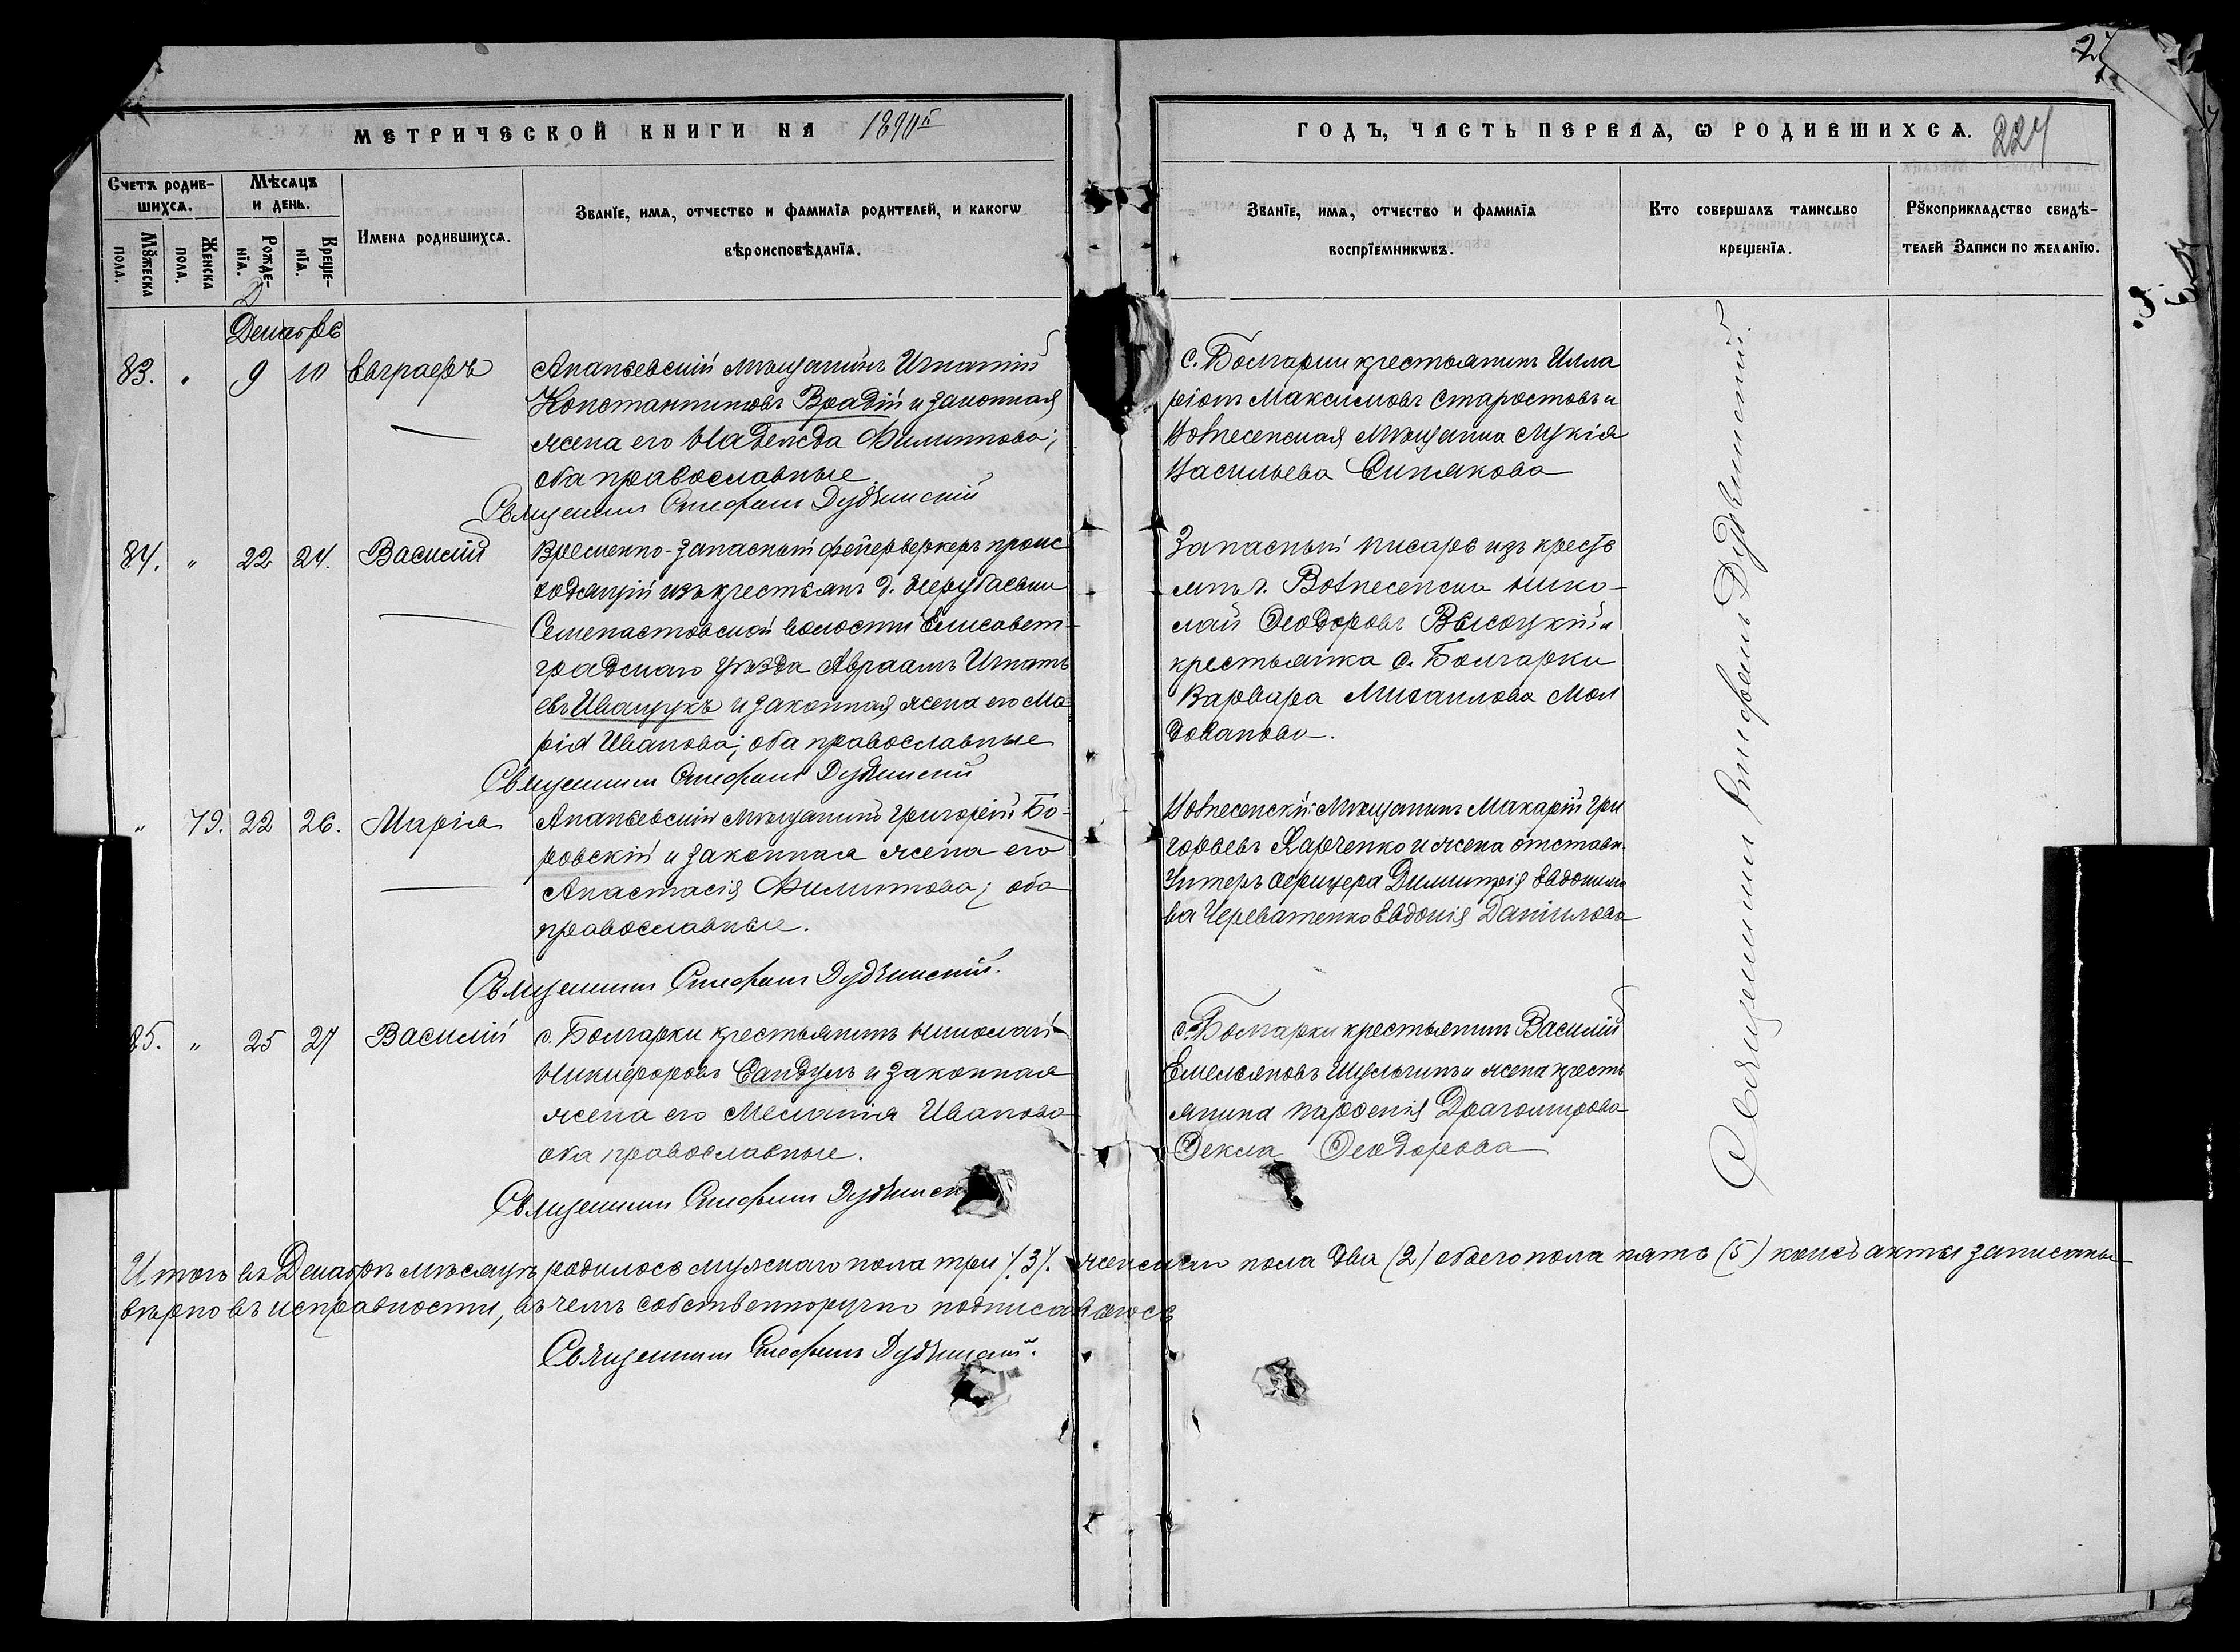 МЕТРИЧЕСКОЙ КНИГИ НА 1890й
ГОДЪ, ЧАСТЬ ПЕРВАЯ, Ѡ РОДИВШИХСѦ. 227
Счетъ родив-
шихсѧ.
Мѣсѧцъ
и день.
Мꙋжеска
пола.
Женска
пола.
Рожде-
нїѧ.
Креще-
нїѧ.
Имена родившихсѧ.
Званїе, имѧ, отчество и фамилїѧ родителей, и какогѡ
вѣроисповѣданїѧ.
Званїе, имѧ, отчество и фамилїѧ
воспрїемникѡвъ.
Кто совершалъ таинство
крещенїѧ.
Рꙋкоприкладство свидѣ-
телей Записи по желанїю.
Декабрь
83. " 9 10 Евграфъ
Ананьевскій мѣщанинъ Игнатій
Константиновъ Врадій и законная
жена его Надежда Филиппова;
оба православные.
Священникъ Стефанъ
с. Болгарки крестьянинъ Илла
ріонъ Максимовъ Старостовъ и
Вознесенская мѣщанка Лукія
Васильева Синякова
84. " 22 24. Василій
Временно-запасный фейерверкеръ проис
ходящій изъ крестьянъ д.
Семенастовской волости Елисавет-
градскаго уѣзда Авраамъ Игнать
евъ Иващукъ и законная жена его Ма
рія Иванова; оба православные
Священникъ Стефанъ
Запасный писарь изъ кресть
янъ г. Вознесенска Нико-
лай Ѳеодоровъ Высоцкій и
крестьянка с. Болгарки
Варвара Михаилова Мол
дованова.
" 79. 22 26. Марія
Ананьевскій мѣщанинъ Григорій Бо-
ровскій и законная жена его
Анастасія Филиппова; оба
православные.
Священникъ Стефанъ
Вознесенскій мѣщанинъ Макарій Гри
горьевъ Харченко и жена отставн.
Унтеръ офицера Димитрія Евдокимо
ва Череватенко Евдокія Даніилова
85. " 25 27 Василій
с. Болгарки крестьянинъ Николай
Никифоровъ Сандулъ и законная
жена его Меланія Иванова
оба православные.
Священникъ Стефанъ
с. Болгарки крестьянинъ Василій
Емельяновъ Шульгинъ и жена кресть
янина Парѳенія Драгомирова
Ѳекла Ѳеодорова
Священникъ Стефанъ
Итого въ Декабрѣ мѣсяцѣ родилось мужскаго пола три /.3/. женскаго пола два (2) обоего пола пять (5) коихъ акты записаны
вѣрно въ исправности, въ чемъ собственноручно подписываюсь
Священникъ Стефанъ